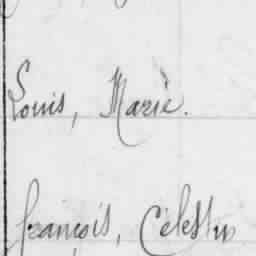 Louis, Marie.
françois, Célestin